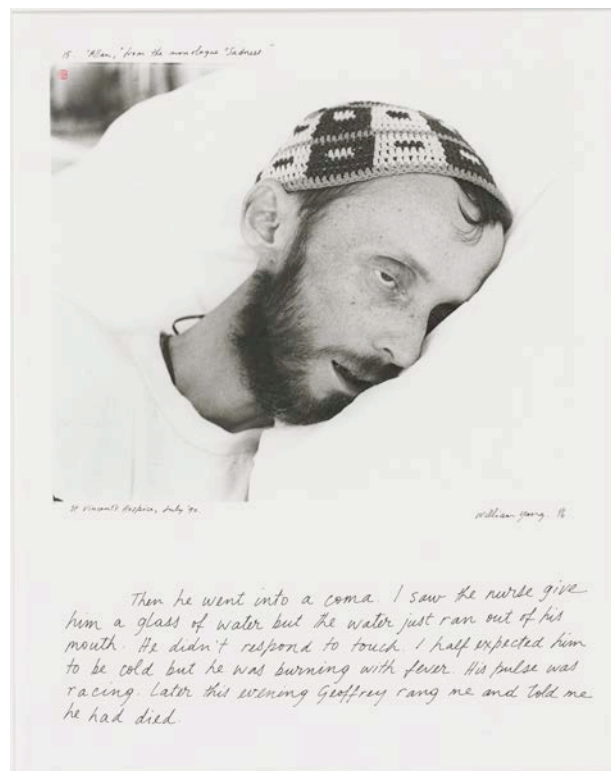 15. "Allan," from the monologue "Sadness."
St Vincent's Hospice, July '90.
William Yang.
Then he went into a coma. I saw the nurse give
him a glass of water but the water just ran out of his
mouth. He didn't respond to touch. I half expected him
to be cold but he was burning with fever. His pulse was
racing. Later this evening Geoffrey rang me and told me
he had died.